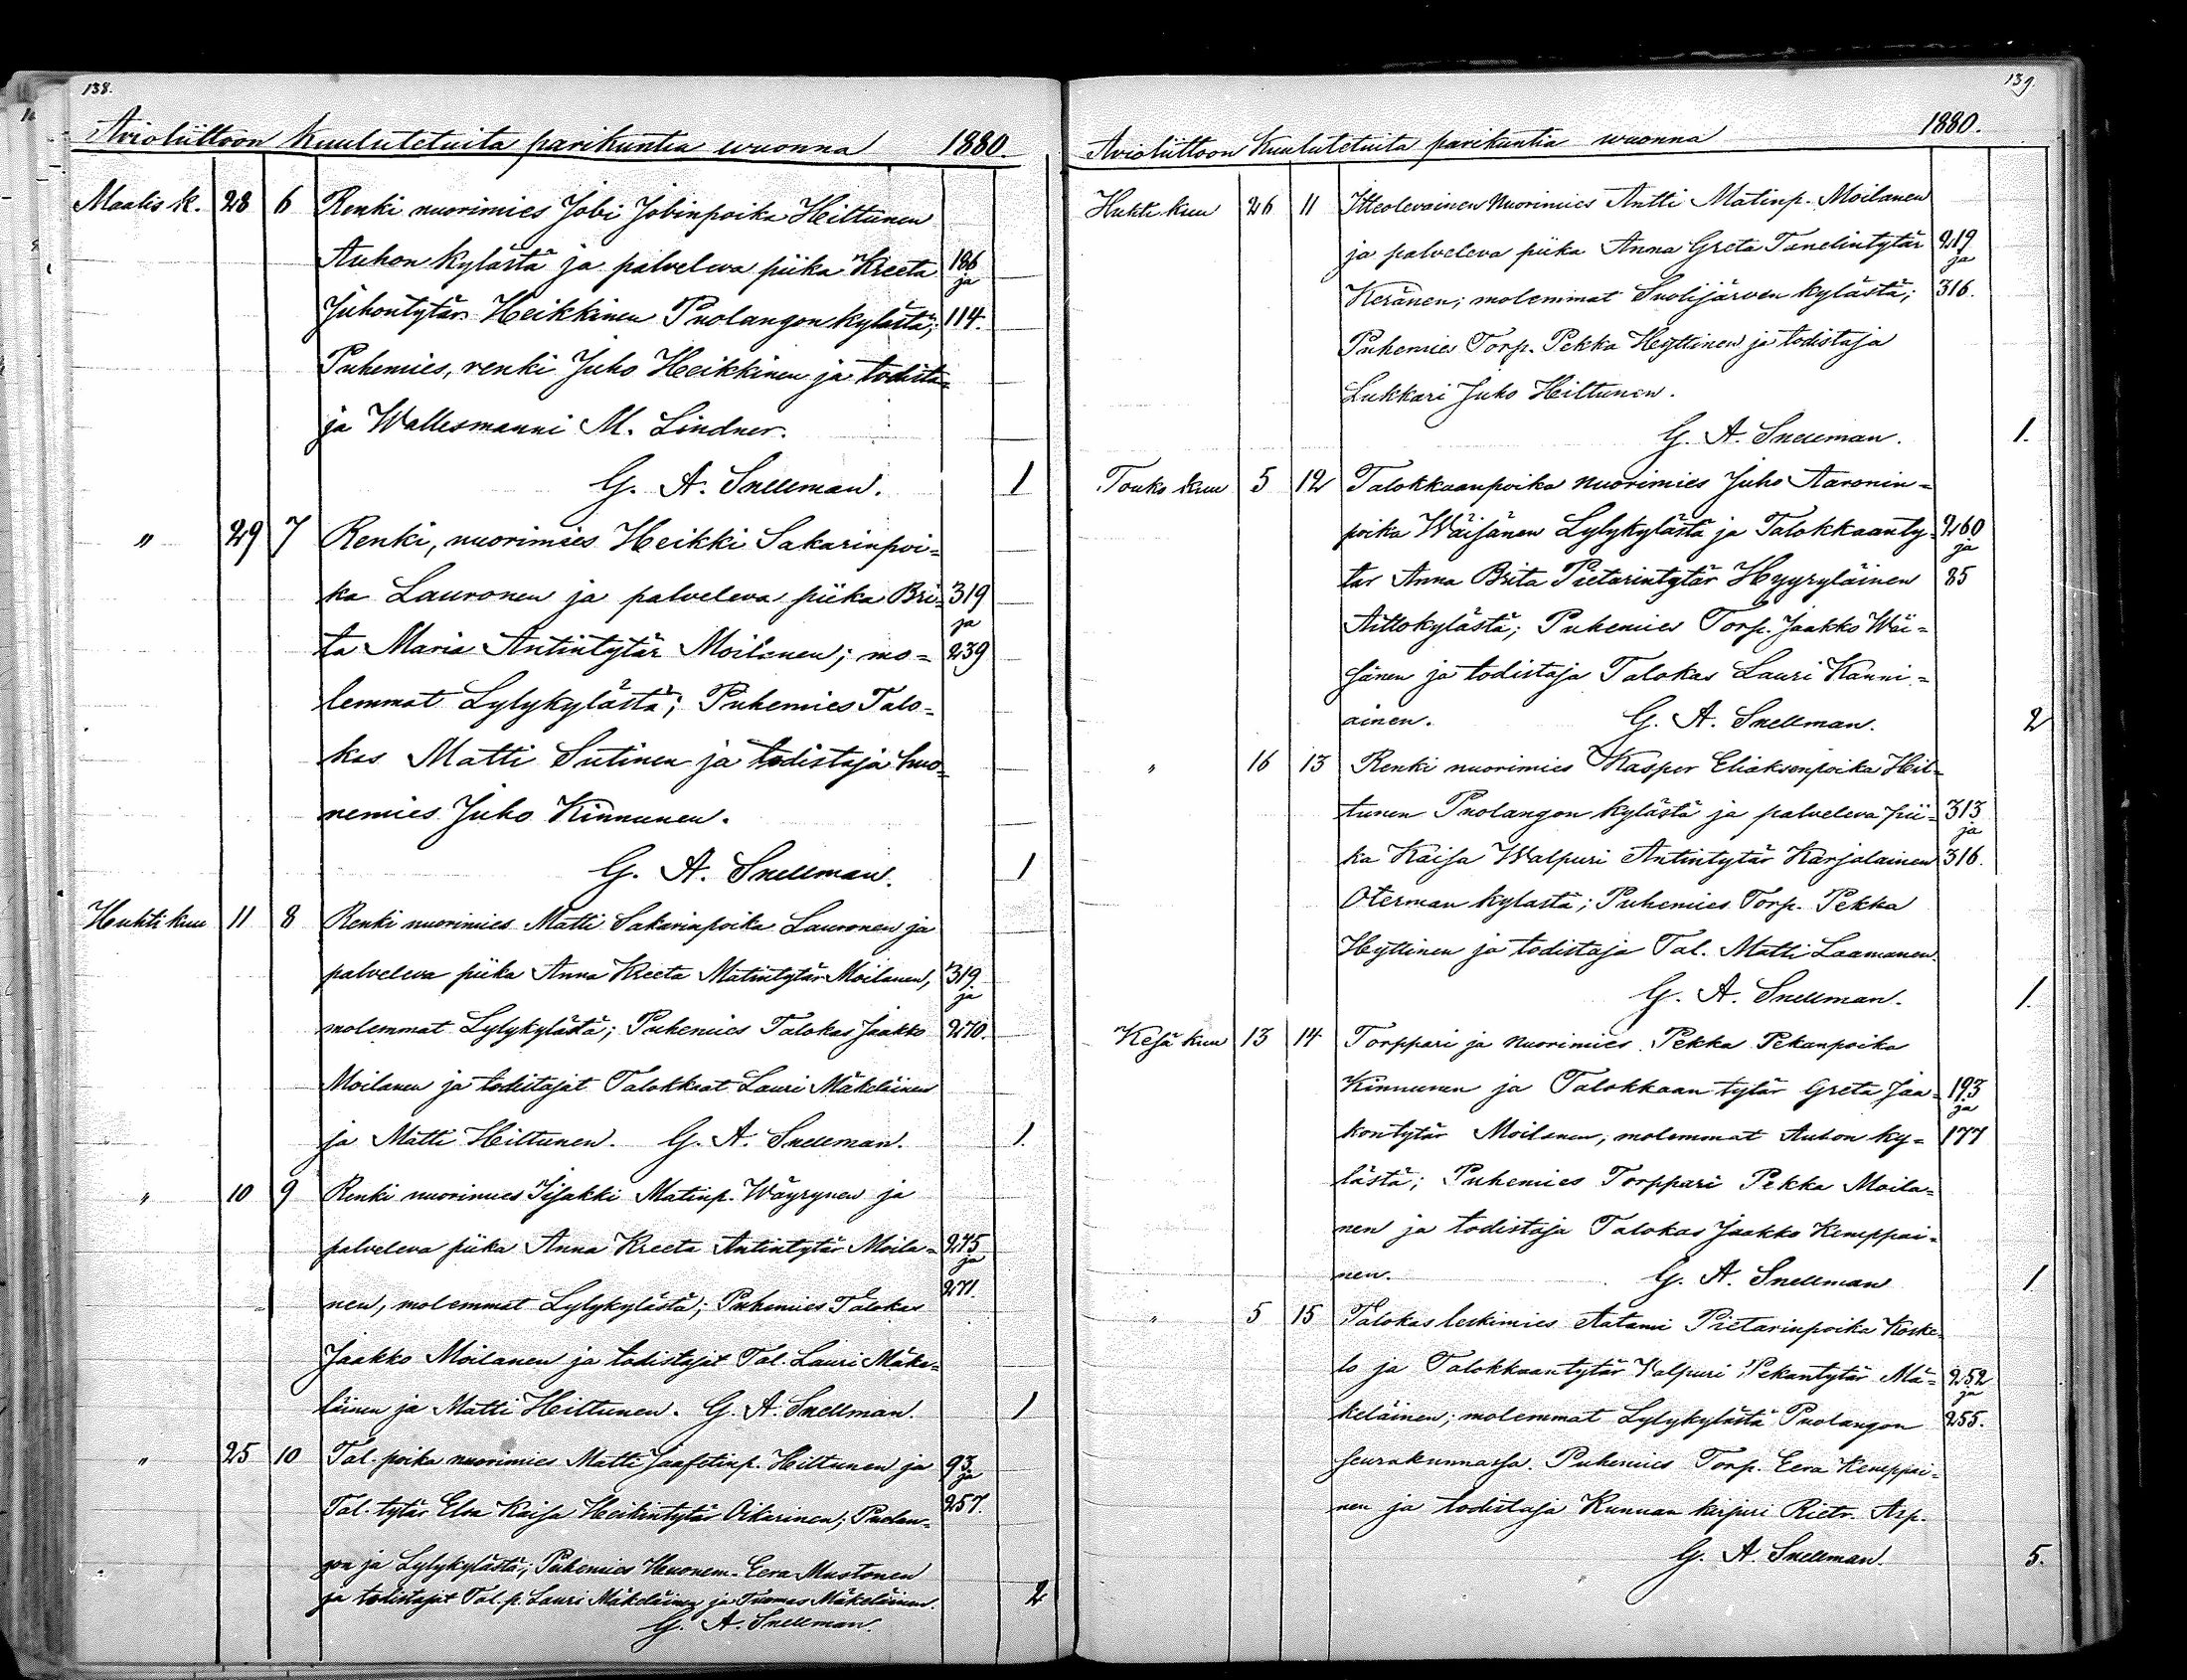 138.
Avioliittoon kuulutetuita parikuntia wuonna 1880.
Maalis k. 28 6 Renki nuorimies Jobi Jobinpoika Heiltunen
Auhon kylästä ja palveleva piika Kreeta 186 ja
Juhontytär Heikkinen Puolangon kylästä; 114.
Puhemies, renki Juho Heikkinen ja todista=
ja Wallesmanni M. Lindner.
G. A. Snellman. 1
" 29 7 Renki, nuorimies Heikki Sakarinpoi=
ka Lauronen ja palveleva piika Bri= 319 ja
ta Maria Antintytär Moilanen; mo= 239
lemmat Lylykylästä; Puhemies Talo=
kas Matti Sutinen ja todistaja huo=
nemies Juho Kinnunen.
G. A. Snellman. 1
Huhti kuu 11 8 Renki nuorimies Matti Sakarinpoika Lauronen ja
palveleva piika Anna Kreeta Matintytär Moilanen, 319. ja
molemmat Lylykylästä; Puhemies Talokas Jaakko 270.
Moilanen ja todistajat Talokkaat Lauri Mäkeläinen
ja Matti Hiltunen. G. A. Snellman. 1.
" 10 9 Renki nuorimies Iisakki Matinp. Wäyrynen ja
palveleva piika Anna Kreeta Antintytär Moila= 275 ja
nen, molemmat Lylykylästä; Puhemies Talokas 271.
Jaakko Moilanen ja todistajat Tal. Lauri Mäke=
läinen ja Matti Hiltunen. G. A. Snellman. 1
" 25 10 Tal. poika nuorimies Matti Jaafetinp. Hiltunen ja 93. ja
Tal. tytär Elsa Kaisa Heikintytär Oikarinen; Puolan= 257.
gon ja Lylykylästä; Puhemies Huonem. Eera Mustonen
ja todistajat Tal. p. Lauri Mäkeläinen ja Tuomas Mäkeläinen. 2
G. A. Snellman.
139.
Avioliittoon Kuulutetuita parikuntia wuonna 1880.
Huhti kuu 26 11 Itteolevainen Nuorimies Antti Matinp. Moilanen
ja palveleva piika Anna Greta Tanelintytär 219 ja
Keränen; molemmat Suolijärven kylästä; 316.
Puhemies Torp. Pekka Heyttinen ja todistaja
Lukkari Juho Hiltunen.
G. A. Snellman. 1.
Touko kuu 5 12 Talokkaanpoika nuorimies Juho Aaronin=
poika Wäisänen Lylykylästä ja Talokkaanty= 260 ja
tär Anna Brita Pietarintytär Hyyryläinen 85
Aittokylästä; Puhemies Torp. Jaakko Wäi=
sänen ja todistaja Talokas Lauri Kanni=
ainen. G. A. Snellman. 2
" 16 13 Renki nuorimies Kasper Eliaksenpoika Hil=
tunen Puolangon kylästä ja palveleva pii= 313 ja
ka Kaisa Walpuri Antintytär Karjalainen 316.
Oterman kylästä; Puhemies Torp. Pekka
Heyttinen ja todistaja Tal. Matti Laamanen.
G. A. Snellman. 1.
Kesä kuu 13 14 Torppari ja nuorimies Pekka Pekanpoika
Kinnunen ja Talokkaan tytär Greta Jaa= 193 ja
kontytär Moilanen, molemmat Auhon ky= 177
lästä; Puhemies Torppari Pekka Moila=
nen ja todistaja Talokas Jaakko Kemppai=
nen. G. A. Snellman 1
" 5 15 Talokas leskimies Aatami Pietarinpoika Koske=
lo ja Talokkaantytär Valpuri Pekantytär Mä= 252 ja
keläinen; molemmat Lylykylästä Puolangon 255.
seurakunnassa. Puhemies Torp. Eera Kemppai=
nen ja todistaja Kunnan kirjuri Rietr. Asp.
G. A. Snellman. 5.